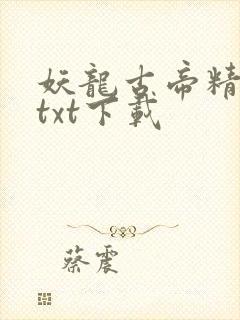 妖龍古帝精
txt下載
蔡震